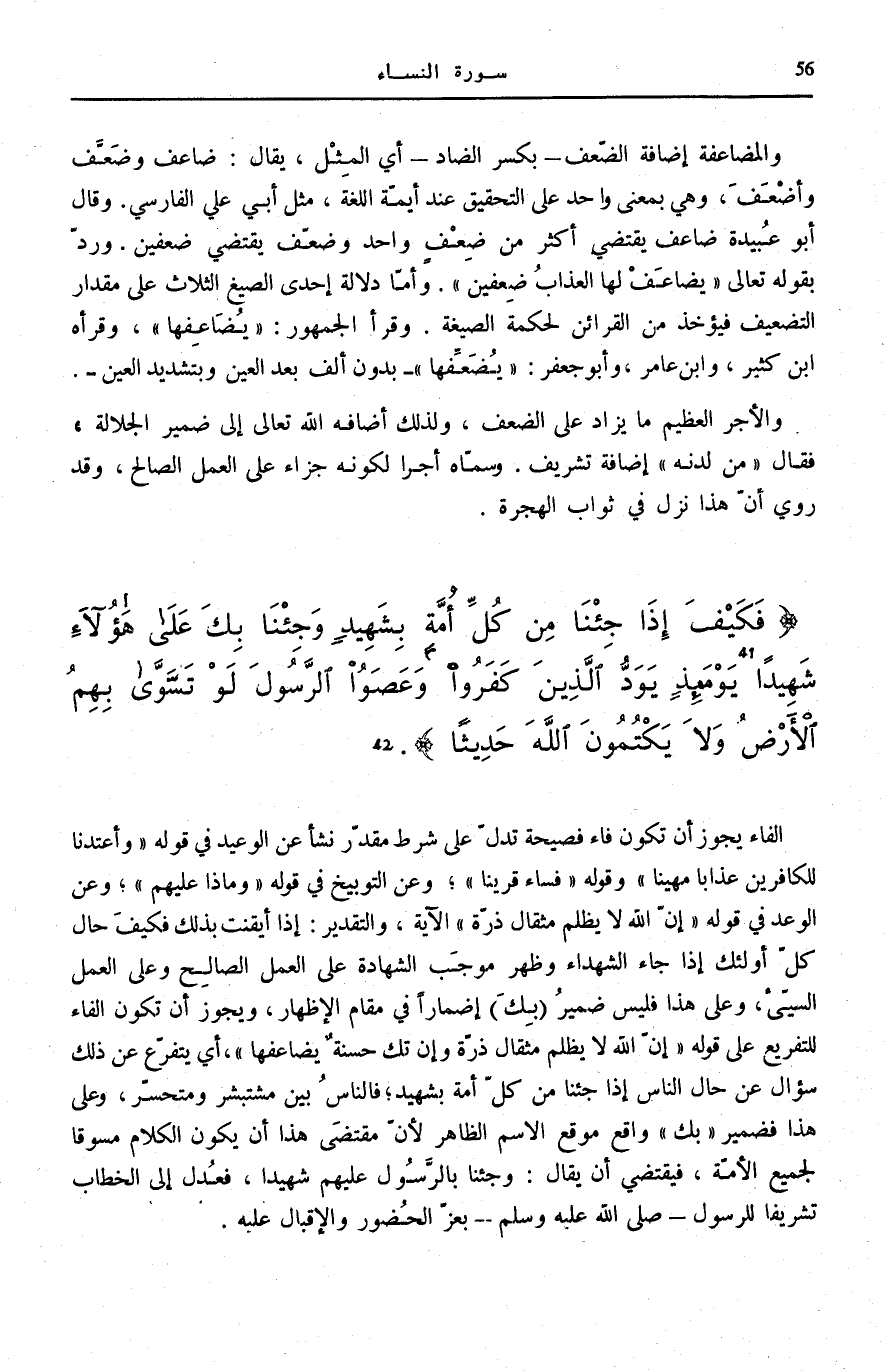 56
سورة النساء
والمضاعفة إضافة الضّعف – بكسر الضاد – أي المِثْل ، يقال : ضاعف وضَعَّف
وأضْعَفَ ، وهي بمعنى واحد على التحقيق عند أيمّة اللغة ، مثل أبي علي الفارسي . وقال
أبو عُبيدة ضاعف يقتضي أكثر من ضِعْفٍ واحد وضعّف يقتضي ضعفين . وردّ
بقوله تعالى « يضاعَفْ لها العذابُ ضِعفين » . وأمّا دلالة إحدى الصيغ الثلاث على مقدار
التضعيف فيؤخذ من القرائن لحكمة الصيغة . وقرأ الجمهور : « يُضَاعِفها » ، وقرأه
ابن كثير ، وابن عامر ، وأبو جعفر : « يُضَعِّفها » – بدون ألف بعد العين وبتشديد العين – .
والأجر العظيم ما يزاد على الضعف ، ولذلك أضافه الله تعالى إلى ضمير الجلالة ،
فقال « من لدنه » إضافة تشريف . وسمّاه أجرا لكونه جزاء على العمل الصالح ، وقد
روي أنّ هذا نزل في ثواب الهجرة .
﴿ فَكَيْفَ إِذَا جِئْنَا مِن كُلِّ أُمَّةٍ بِشَهِيدٍ وَجِئْنَا بِكَ عَلَىٰ هَٰؤُلَآءِ
شَهِيدًا 41 يَوْمَئِذٍ يَوَدُّ ٱلَّذِينَ كَفَرُواْ وَعَصَوُاْ ٱلرَّسُولَ لَوْ تَسَّوَّىٰ بِهِمُ
ٱلْأَرْضُ وَلَا يَكْتُمُونَ ٱللَّهَ حَدِيثًا ﴾ . 42
الفاء يجوز أن تكون فاء فصيحة تدلّ على شرط مقدّر نشأ عن الوعيد في قوله « وأعتدنا
للكافرين عذابا مهينا » وقوله « فساء قرينا » ؛ وعن التوبيخ في قوله « وماذا عليهم » ؛ وعن
الوعد في قوله « إنّ الله لا يظلم مثقال ذرّة » الآية ، والتقدير : إذا أيقنت بذلك فكيفَ حال
كلّ أولئك إذا جاء الشهداء وظهر موجَب الشهادة على العمل الصالح وعلى العمل
السيّئ ، وعلى هذا فليس ضميرُ (بِكَ) إضماراً في مقام الإظهار ، ويجوز أن تكون الفاء
للتفريع على قوله « إنّ الله لا يظلم مثقال ذرّة وإن تك حسنةٌ يضاعفها » ، أي يتفرّع عن ذلك
سؤال عن حال الناس إذا جئنا من كلّ أمة بشهيد ؛ فالناسُ بين مشتبشر ومتحسّر ، وعلى
هذا فضمير « بك » واقع موقع الاسم الظاهر لأنّ مقتضَى هذا أن يكون الكلام مسوقا
لجميع الأمّة ، فيقتضي أن يقال : وجئنا بالرَّسُول عليهم شهيدا ، فعُدل إلى الخطاب
تشريفا للرسول – صلى الله عليه وسلم – بعزّ الحُضور والإقبال عليه .